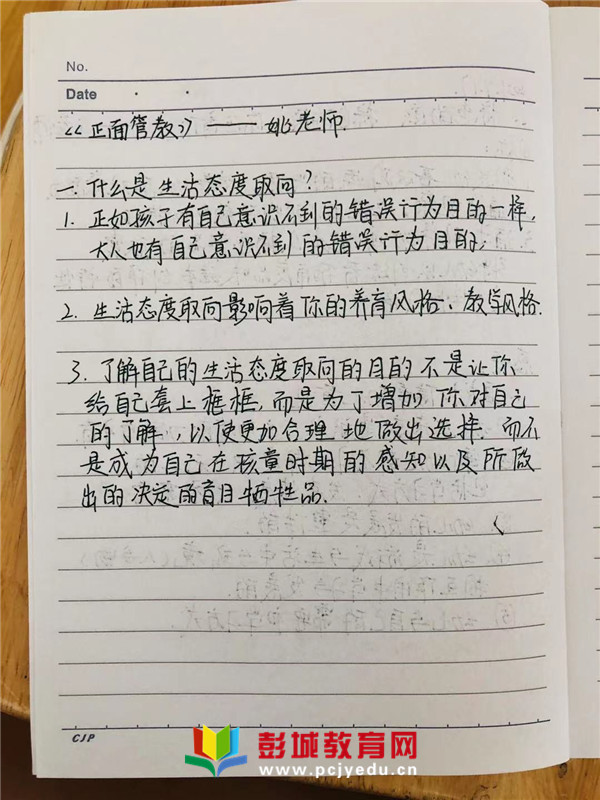 No.
Date
《正面管教》——姚老师.
一.什么是生活态度取向?
1. 正如孩子有自己意识不到的错误行为目的一样,
大人也有自己意识不到的错误行为目的;
2. 生活态度取向影响着你的养育风格、教学风格.
3. 了解自己的生活态度取向的目的不是让你
给自己套上框框,而是为了增加你对自己
的了解,以便更加合理地做出选择.而不
是成为自己在孩童时期的感知以及所做
出的决定的盲目牺牲品.
CJP
彭城教育网
www.pcjyedu.cn